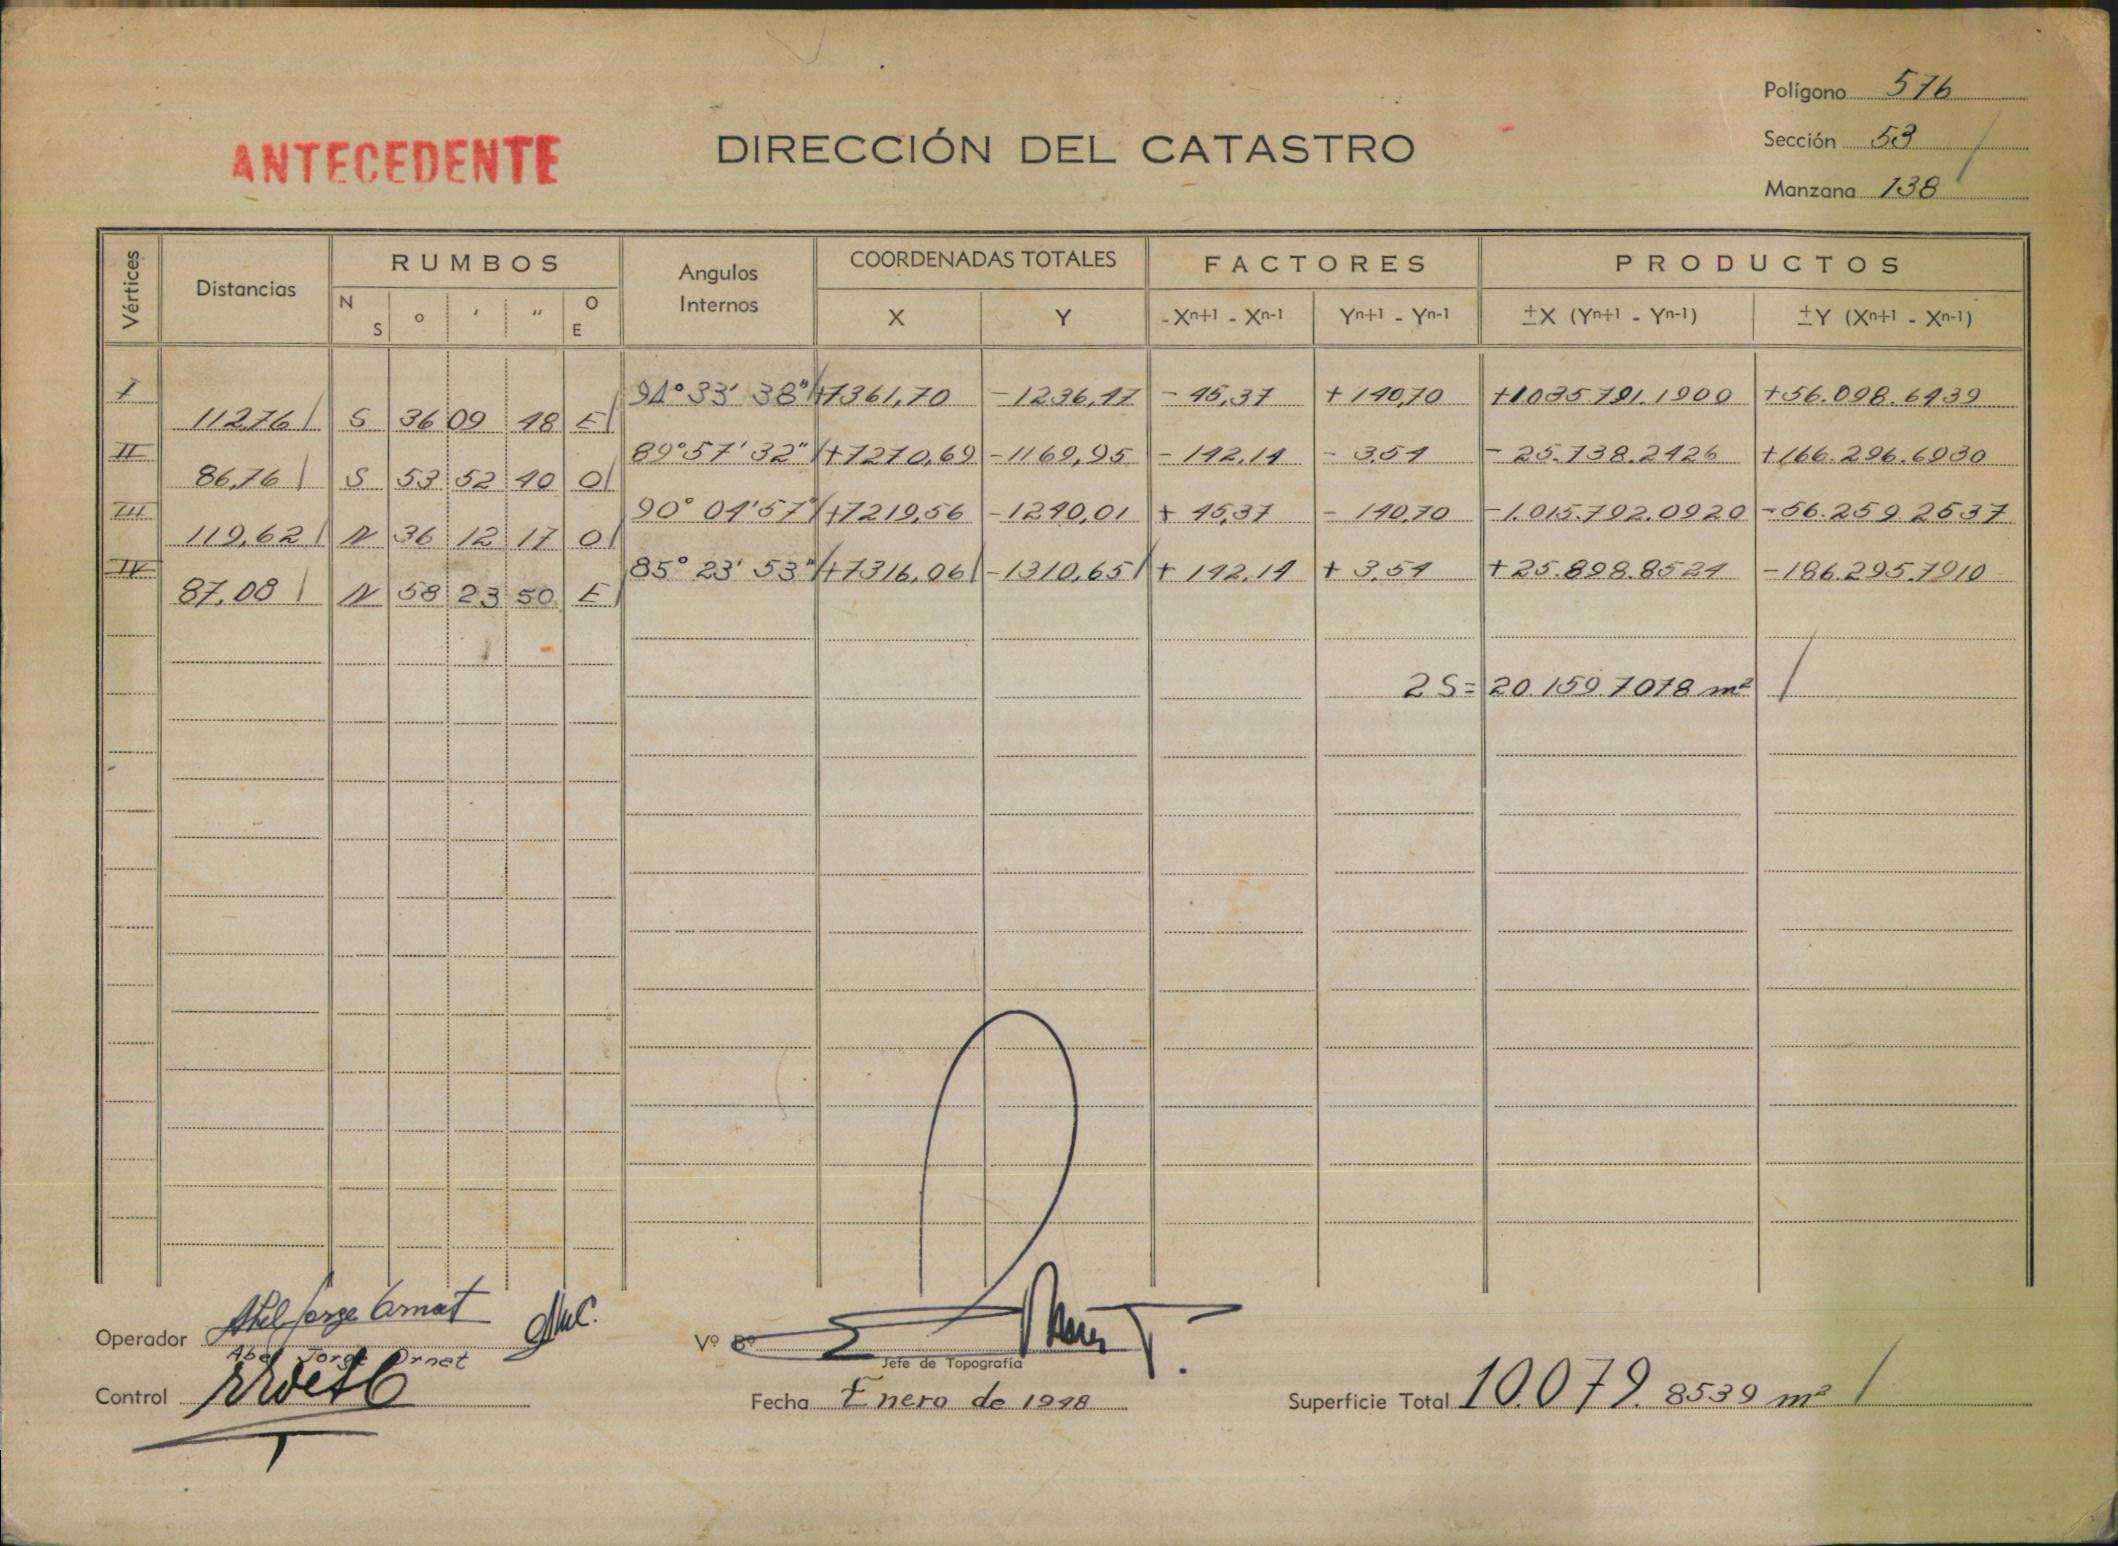 Polígono 576
ANTECEDENTE
DIRECCIÓN DEL CATASTRO
Sección 53
Manzana 138
Vértices Distancias RUMBOS N S ° ' " O E Angulos Internos COORDENADAS TOTALES X Y FACTORES -Xⁿ⁺¹ - Xⁿ⁻¹ Yⁿ⁺¹ - Yⁿ⁻¹ PRODUCTOS ±X (Yⁿ⁺¹ - Yⁿ⁻¹) ±Y (Xⁿ⁺¹ - Xⁿ⁻¹)
I 94° 33' 38" +7361,70 -1236,47 - 45,37 + 140,70 +1035791.1900 +56.098.6439
112,76 S 36 09 48 E
II 89° 57' 32" +7270,69 -1169,95 - 142,14 - 3,54 - 25.738.2426 +166.296.6930
86,76 S 53 52 40 O
III 90° 04' 57" +7219,56 -1240,01 + 45,37 - 140,70 -1.015.792.0920 -56.259.2537
119,62 N 36 12 17 O
IV 85° 23' 53" +7316,06 -1310,65 + 142,14 + 3,54 +25.898.8524 -186.295.7910
87,08 N 58 23 50 E
2 S = 20.159.7078 m²
Operador
Abel Jorge Ornat
Control
Vº Bº
Jefe de Topografía
Fecha Enero de 1948
Superficie Total 10.079.8539 m²